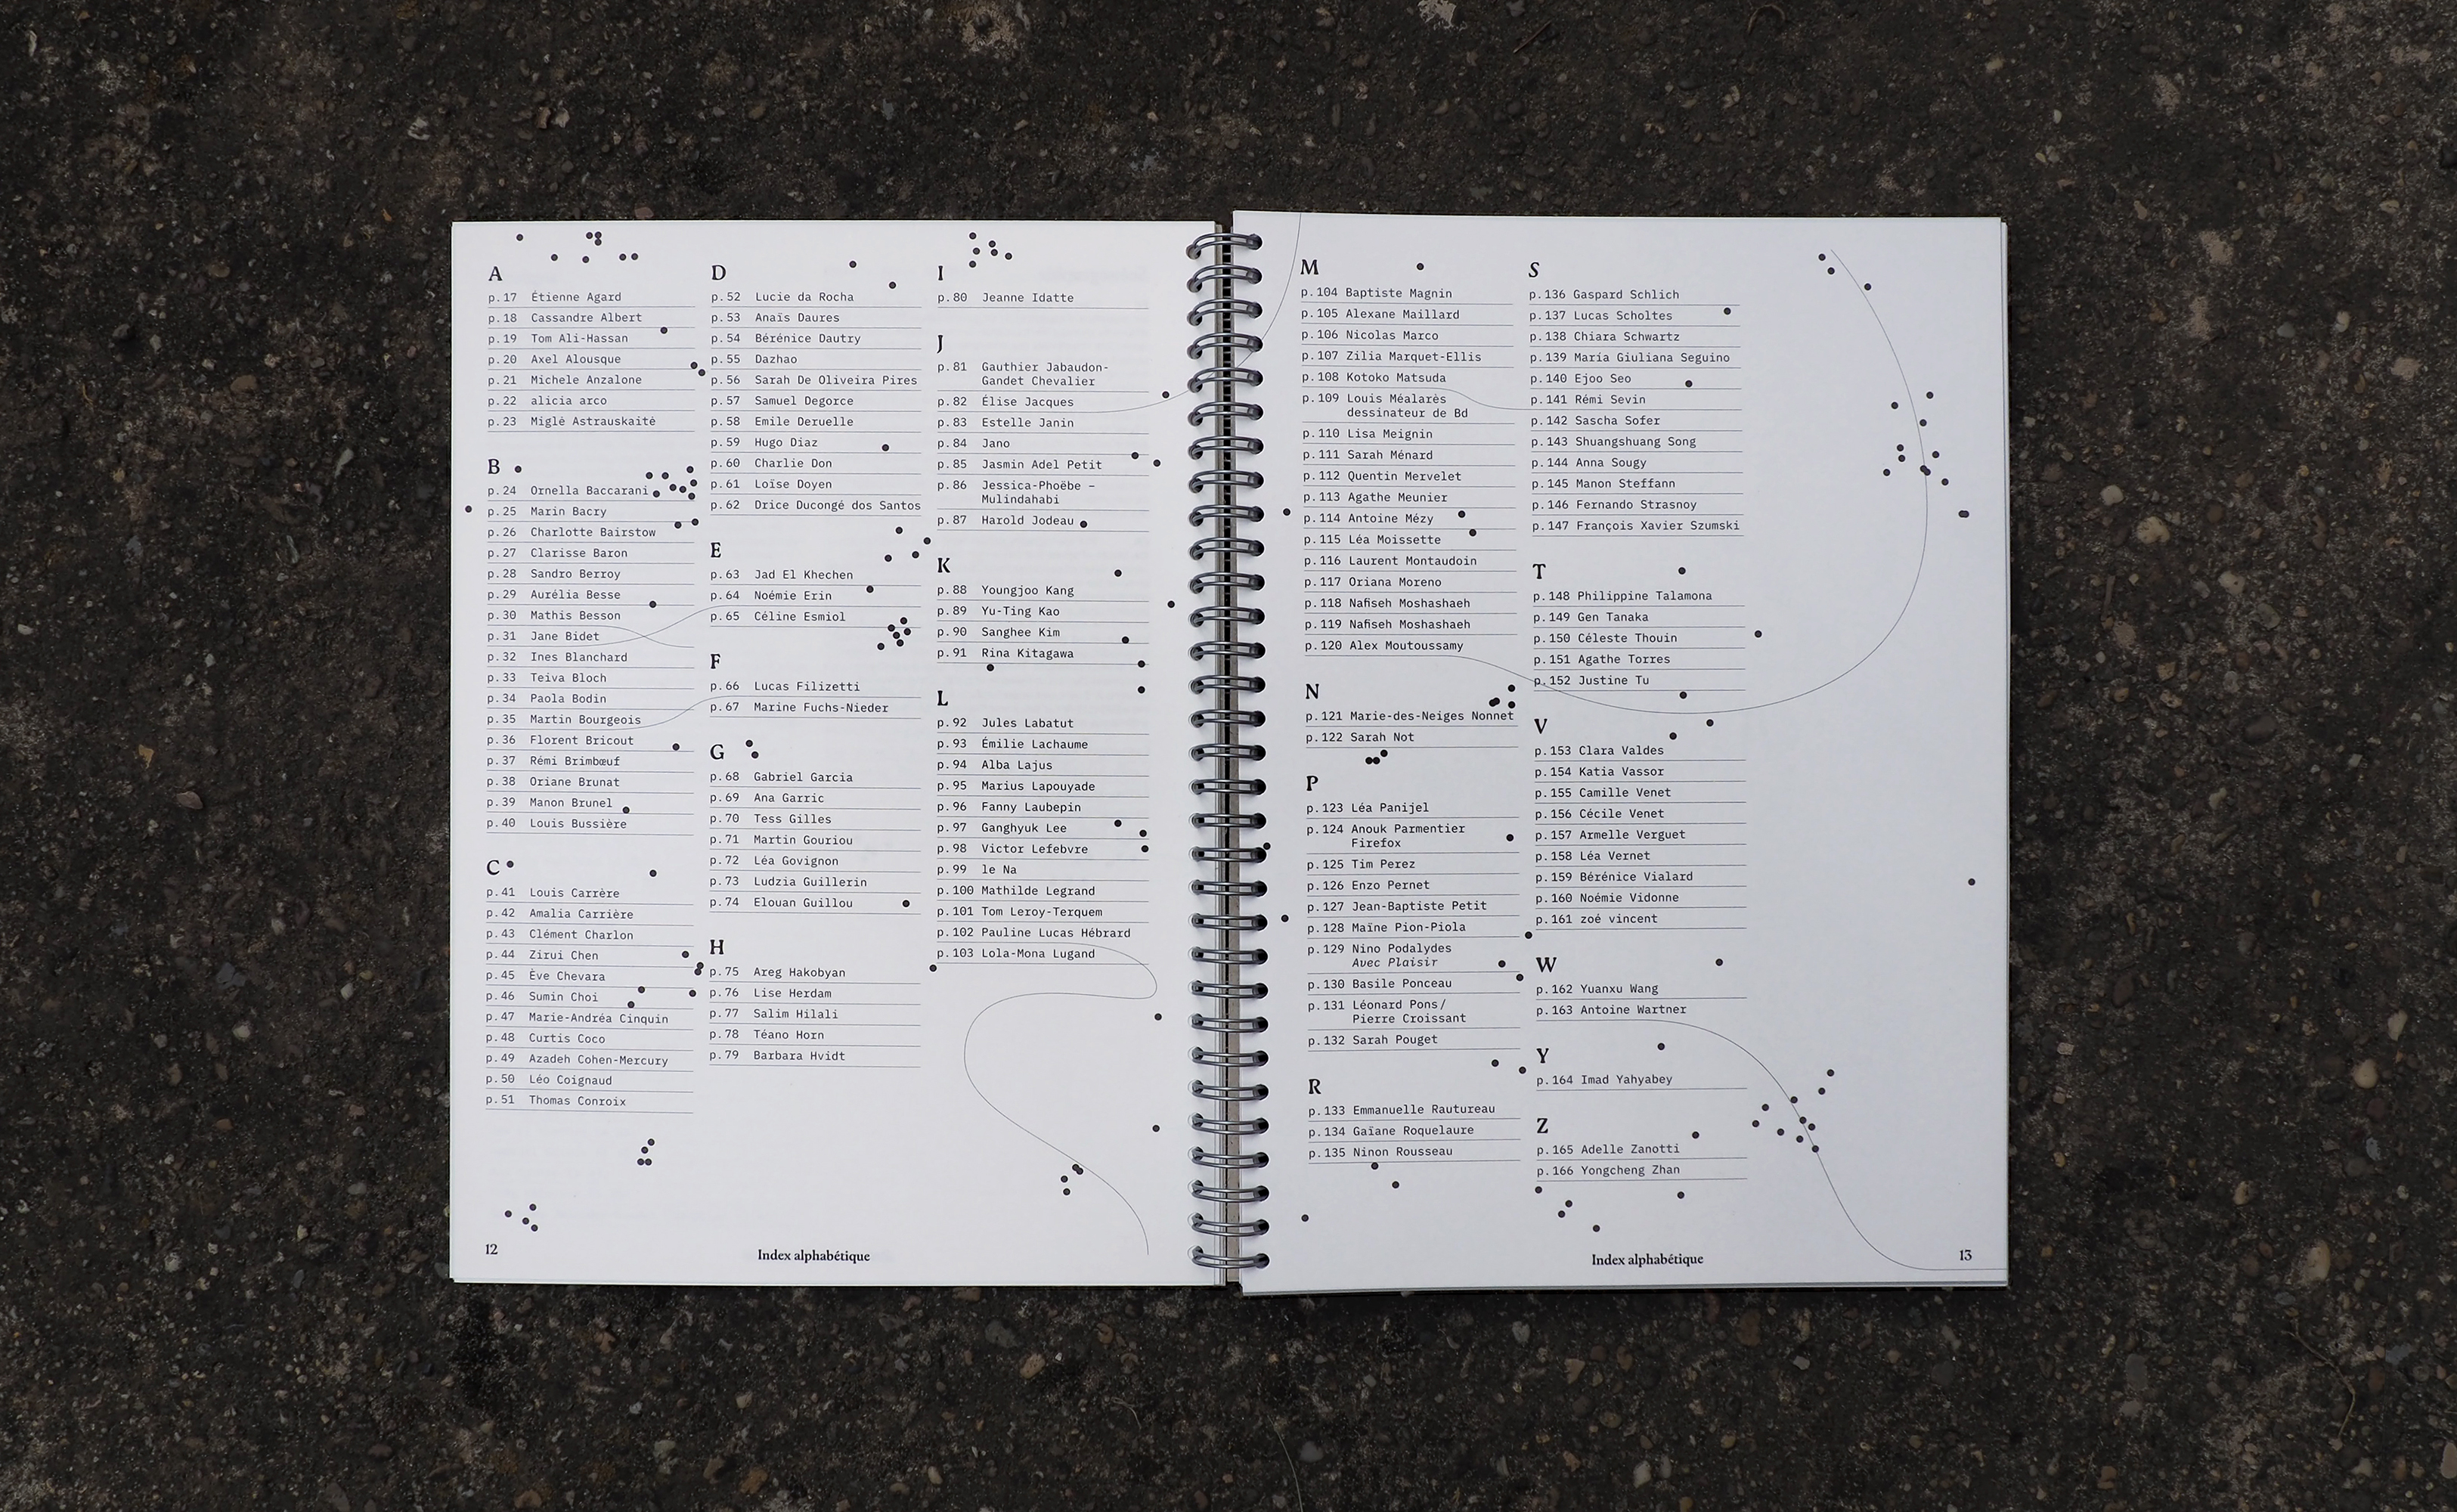 A
p.17 Étienne Agard
p.18 Cassandre Albert
p.19 Tom Ali-Hassan
p.20 Axel Alousque
p.21 Michele Anzalone
p.22 alicia arco
p.23 Miglė Astrauskaitė
B
p.24 Ornella Baccarani
p.25 Marin Bacry
p.26 Charlotte Bairstow
p.27 Clarisse Baron
p.28 Sandro Berroy
p.29 Aurélia Besse
p.30 Mathis Besson
p.31 Jane Bidet
p.32 Ines Blanchard
p.33 Teiva Bloch
p.34 Paola Bodin
p.35 Martin Bourgeois
p.36 Florent Bricout
p.37 Rémi Brimbœuf
p.38 Oriane Brunat
p.39 Manon Brunel
p.40 Louis Bussière
C
p.41 Louis Carrère
p.42 Amalia Carrière
p.43 Clément Charlon
p.44 Zirui Chen
p.45 Ève Chevara
p.46 Sumin Choi
p.47 Marie-Andréa Cinquin
p.48 Curtis Coco
p.49 Azadeh Cohen-Mercury
p.50 Léo Coignaud
p.51 Thomas Conroix
D
p.52 Lucie da Rocha
p.53 Anaïs Daures
p.54 Bérénice Dautry
p.55 Dazhao
p.56 Sarah De Oliveira Pires
p.57 Samuel Degorce
p.58 Emile Deruelle
p.59 Hugo Diaz
p.60 Charlie Don
p.61 Loïse Doyen
p.62 Drice Ducongé dos Santos
E
p.63 Jad El Khechen
p.64 Noémie Erin
p.65 Céline Esmiol
F
p.66 Lucas Filizetti
p.67 Marine Fuchs-Nieder
G
p.68 Gabriel Garcia
p.69 Ana Garric
p.70 Tess Gilles
p.71 Martin Gouriou
p.72 Léa Govignon
p.73 Ludzia Guillerin
p.74 Elouan Guillou
H
p.75 Areg Hakobyan
p.76 Lise Herdam
p.77 Salim Hilali
p.78 Téano Horn
p.79 Barbara Hvidt
I
p.80 Jeanne Idatte
J
p.81 Gauthier Jabaudon-
Gandet Chevalier
p.82 Élise Jacques
p.83 Estelle Janin
p.84 Jano
p.85 Jasmin Adel Petit
p.86 Jessica-Phoëbe –
Mulindahabi
p.87 Harold Jodeau
K
p.88 Youngjoo Kang
p.89 Yu-Ting Kao
p.90 Sanghee Kim
p.91 Rina Kitagawa
L
p.92 Jules Labatut
p.93 Émilie Lachaume
p.94 Alba Lajus
p.95 Marius Lapouyade
p.96 Fanny Laubepin
p.97 Ganghyuk Lee
p.98 Victor Lefebvre
p.99 le Na
p.100 Mathilde Legrand
p.101 Tom Leroy-Terquem
p.102 Pauline Lucas Hébrard
p.103 Lola-Mona Lugand
12
Index alphabétique
M
p.104 Baptiste Magnin
p.105 Alexane Maillard
p.106 Nicolas Marco
p.107 Zilia Marquet-Ellis
p.108 Kotoko Matsuda
p.109 Louis Méalarès
dessinateur de Bd
p.110 Lisa Meignin
p.111 Sarah Ménard
p.112 Quentin Mervelet
p.113 Agathe Meunier
p.114 Antoine Mézy
p.115 Léa Moissette
p.116 Laurent Montaudoin
p.117 Oriana Moreno
p.118 Nafiseh Moshashaeh
p.119 Nafiseh Moshashaeh
p.120 Alex Moutoussamy
N
p.121 Marie-des-Neiges Nonnet
p.122 Sarah Not
P
p.123 Léa Panijel
p.124 Anouk Parmentier
Firefox
p.125 Tim Perez
p.126 Enzo Pernet
p.127 Jean-Baptiste Petit
p.128 Maïne Pion-Piola
p.129 Nino Podalydes
Avec Plaisir
p.130 Basile Ponceau
p.131 Léonard Pons/
Pierre Croissant
p.132 Sarah Pouget
R
p.133 Emmanuelle Rautureau
p.134 Gaïane Roquelaure
p.135 Ninon Rousseau
S
p.136 Gaspard Schlich
p.137 Lucas Scholtes
p.138 Chiara Schwartz
p.139 María Giuliana Seguino
p.140 Ejoo Seo
p.141 Rémi Sevin
p.142 Sascha Sofer
p.143 Shuangshuang Song
p.144 Anna Sougy
p.145 Manon Steffann
p.146 Fernando Strasnoy
p.147 François Xavier Szumski
T
p.148 Philippine Talamona
p.149 Gen Tanaka
p.150 Céleste Thouin
p.151 Agathe Torres
p.152 Justine Tu
V
p.153 Clara Valdes
p.154 Katia Vassor
p.155 Camille Venet
p.156 Cécile Venet
p.157 Armelle Verguet
p.158 Léa Vernet
p.159 Bérénice Vialard
p.160 Noémie Vidonne
p.161 zoé vincent
W
p.162 Yuanxu Wang
p.163 Antoine Wartner
Y
p.164 Imad Yahyabey
Z
p.165 Adelle Zanotti
p.166 Yongcheng Zhan
Index alphabétique
13